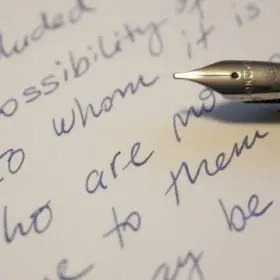 luded
ossibility of
to whom it is
ho are no
e to them
ay be